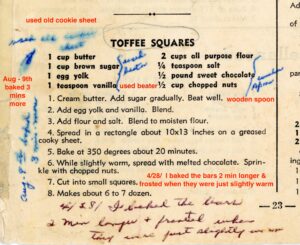 used old cookie sheet
used old cookie
sheet
TOFFEE SQUARES
1 cup butter
1 cup brown sugar
1 egg yolk
1 teaspoon vanilla
used
beater
used beater
2 cups all purpose flour
¼ teaspoon salt
½ pound sweet chocolate
½ cup chopped nuts
wooden
spoon
wooden spoon
Aug - 9th
baked 3
mins
more
1. Cream butter. Add sugar gradually. Beat well.
2. Add egg yolk and vanilla. Blend.
3. Add flour and salt. Blend to moisten flour.
4. Spread in a rectangle about 10x13 inches on a greased
cooky sheet.
5. Bake at 350 degrees about 20 minutes.
6. While slightly warm, spread with melted chocolate. Sprin-
kle with chopped nuts.
7. Cut into small squares.
8. Makes about 6 to 7 dozen.
4/28/ I baked the bars 2 min longer &
frosted when they were just slightly warm
Aug. 9th baked
3 mins more
4/28/ I baked the bars
2 min longer & frosted when
they were just slightly warm
— 23 —